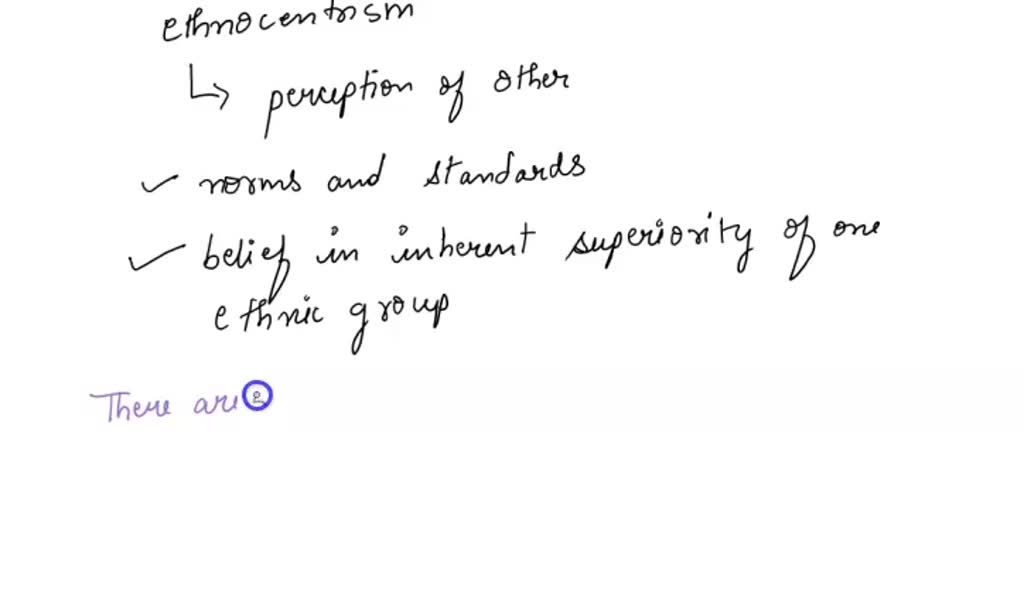 ethnocentrism
↳ perception of other
✓ norms and standards
✓ belief in inherent superiority of one
ethnic group
There are